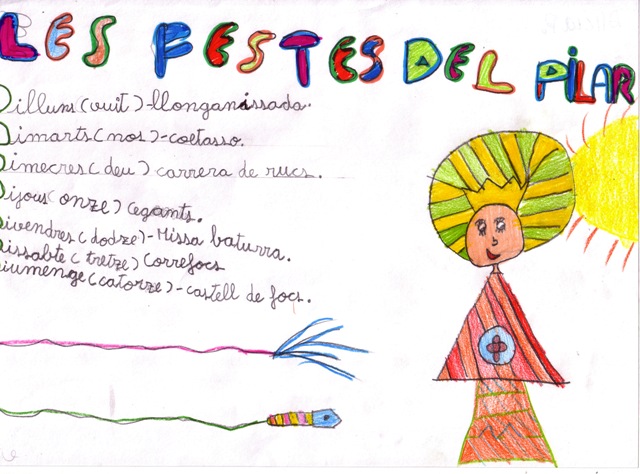 LES FESTES DEL PILAR
Dilluns (vuit) - llonganissada.
Dimarts (nos) - coetasso.
Dimecres (deu) - carrera de rucs.
Dijous (onze) Gegants.
Divendres (dodze) - Missa baturra.
Dissabte (tretze) Correfocs
Diumenge (catorze) - castell de focs.